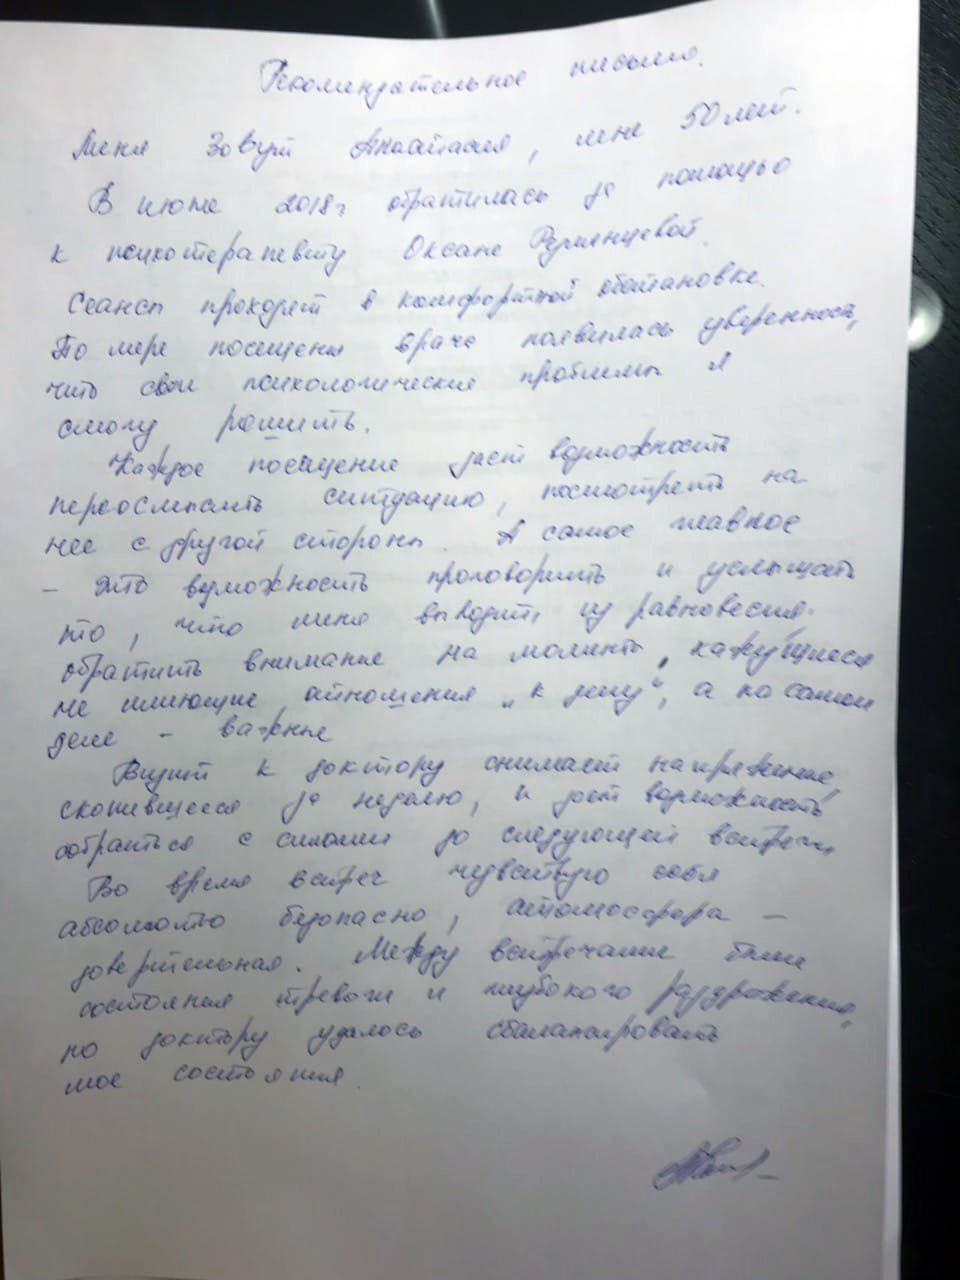 Рекомендательное письмо.
Меня Зовут Анастасия, мне 50 лет.
В июне 2018г обратилась за помощью
к психотерапевту Оксане Румянцевой.
Сеансы проходят в комфортной обстановке.
По мере посещения врача появилась уверенность,
что свои психологические проблемы я
смогу решить.
Каждое посещение дает возможность
переосмыслить ситуацию, посмотреть на
нее с другой стороны. А самое главное
- это возможность проговорить и услышать
то, что меня выводит из равновесия.
обратить внимание на моменты, кажущиеся
не имеющие отношения "к делу", а на самом
деле - важные
Визит к доктору снимает напряжение,
скопившееся за неделю, и дает возможность
собраться с силами до следующей встречи
Во время встреч чувствую себя
абсолютно безопасно, атмосфера -
доверительная. Между встречами были
состояния тревоги и глубокого раздражения,
но доктору удалось сбалансировать
мое состояния.